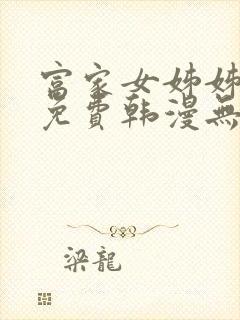 富家女姊姊
免費韩漫無
梁龍